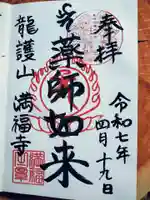 奉拝
令和七年
四月十九日
薬師如来
龍護山
満福寺